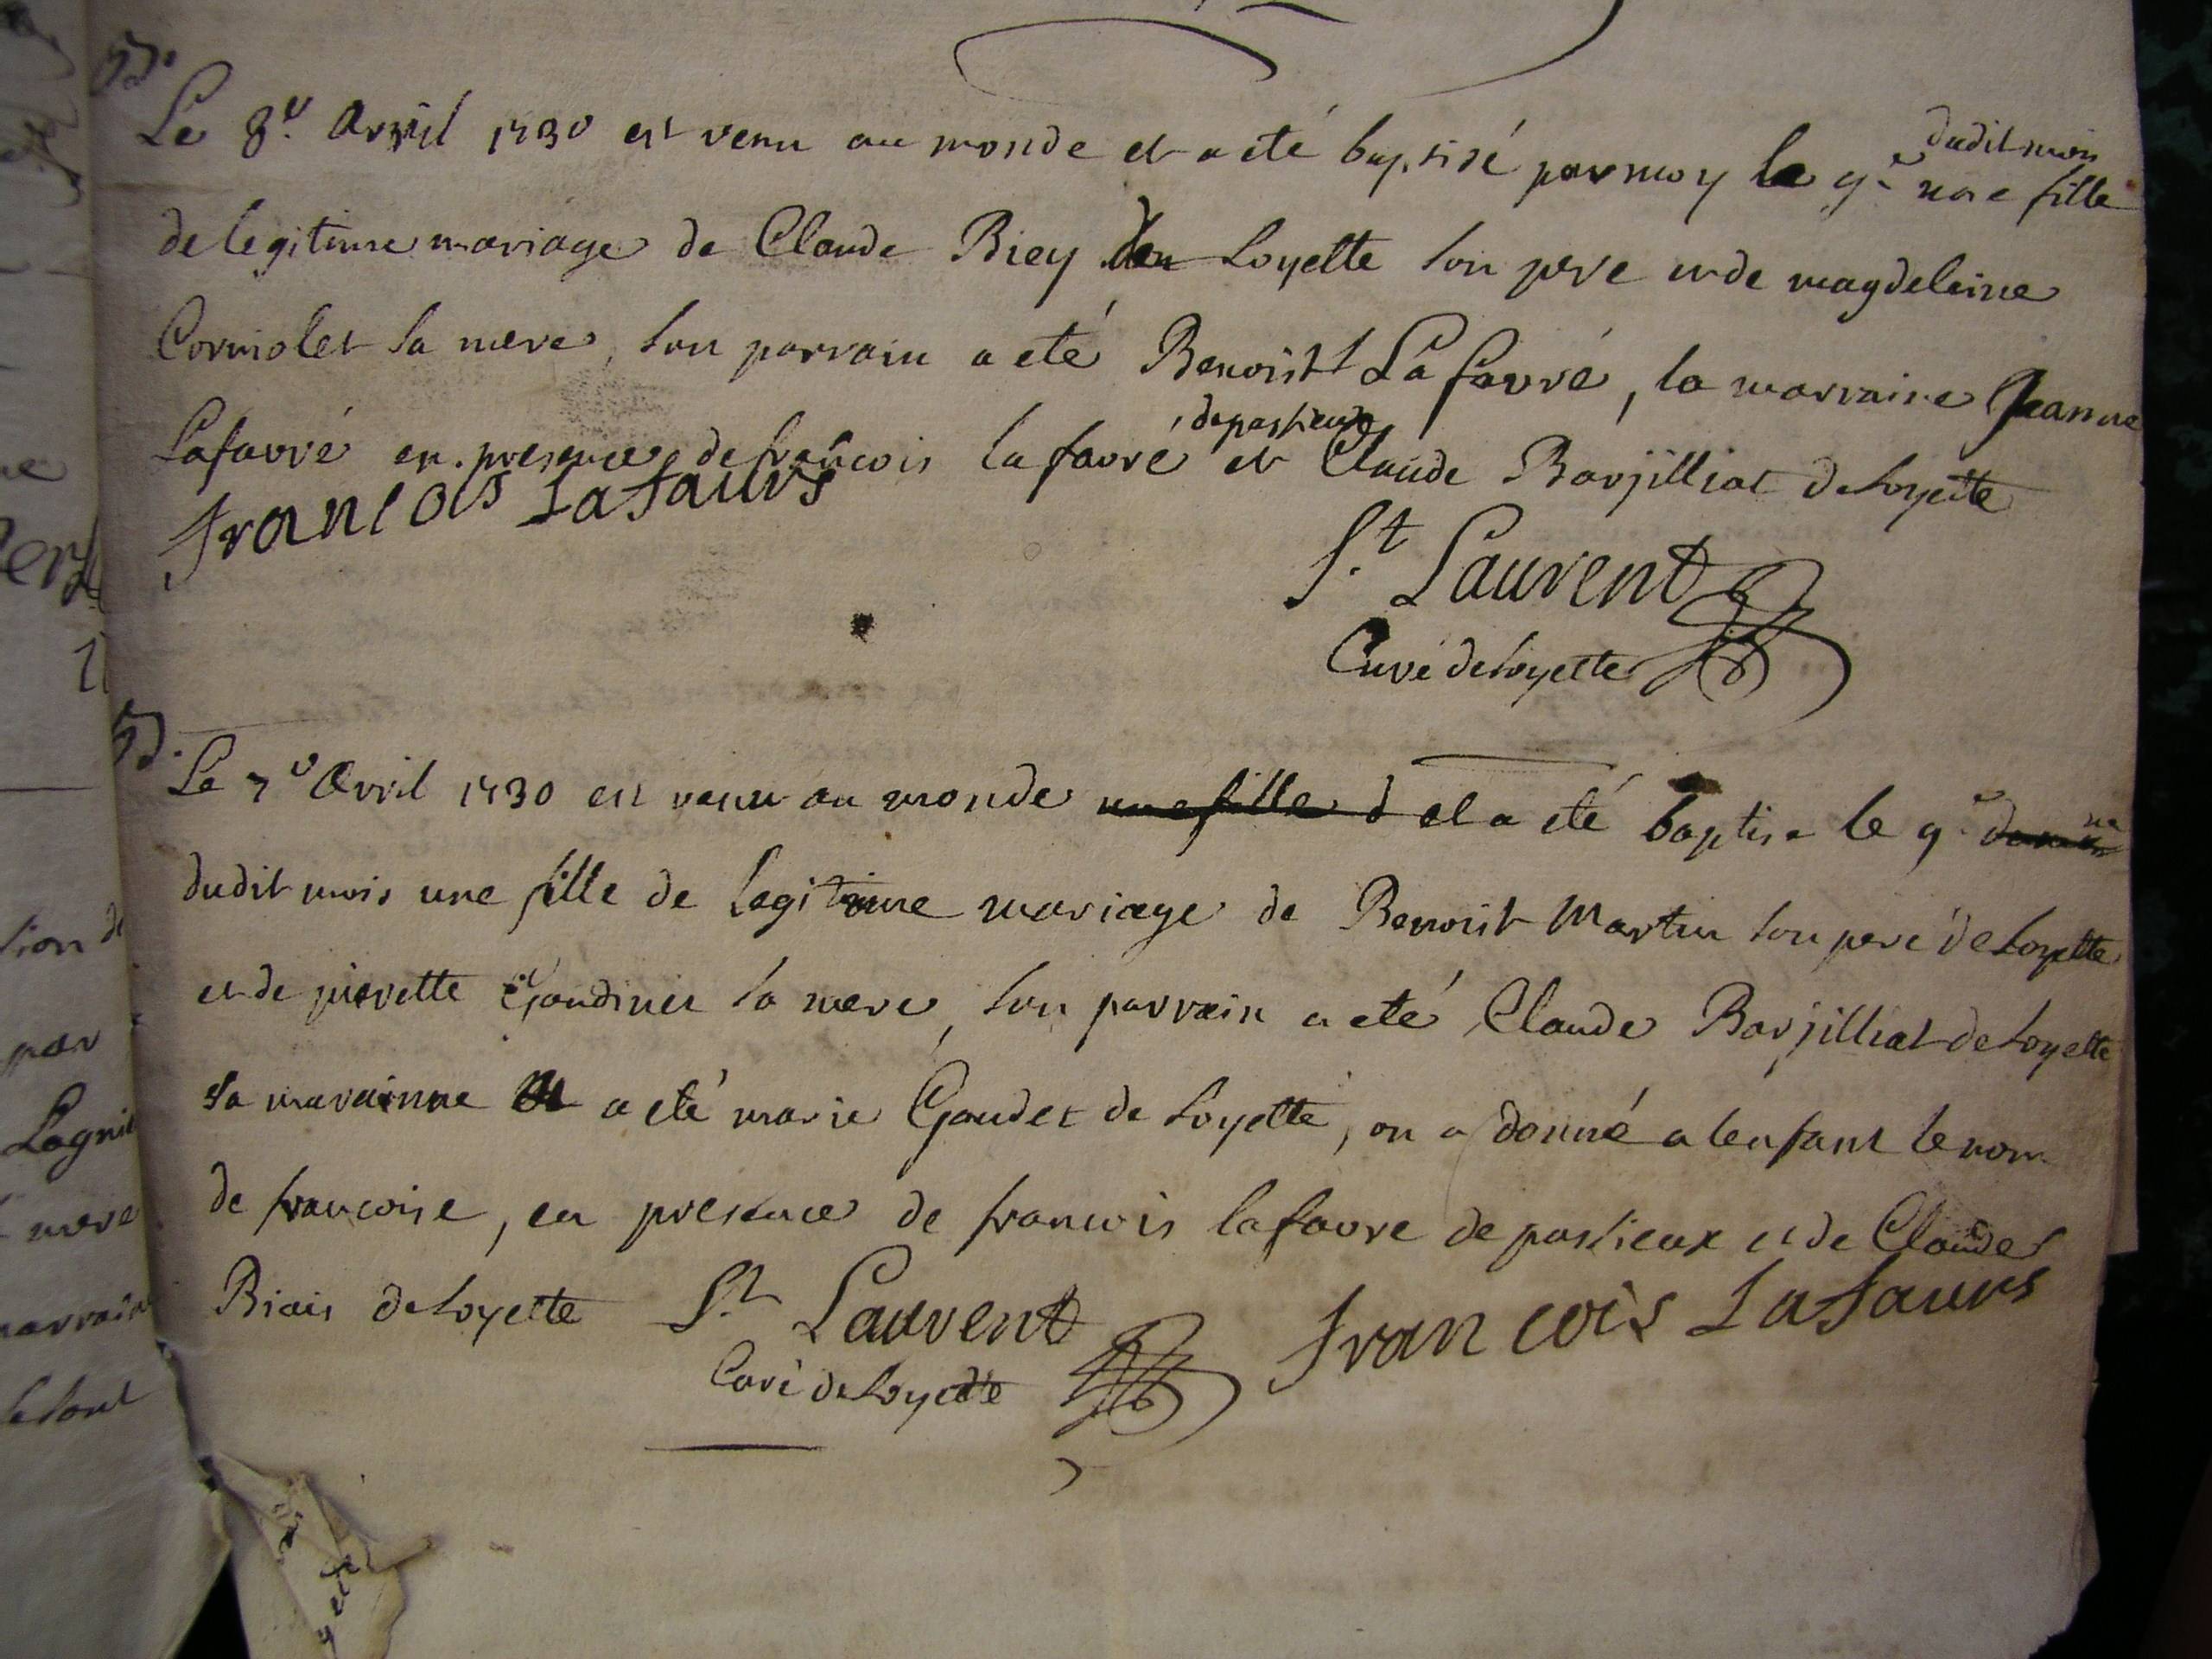 Le 8e. Avril 1730 est venu au monde et a eté baptisé par moy le 9e dudit mois une fille
de legitime mariage de Claude Biey de Loyette son pere et de magdeleine
Cormolet sa mere, son parrain a eté Benoist Lafavré, la marraine Jeanne
Lafavré en presence de francois lafavré de pastieux et Claude Barjilliat de Loyette
francois Lafaurs
St. Laurent
Curé de Loyette
Le 7e Avril 1730 est venu au monde une fille d et a eté baptise le 9e
dudit mois une fille de legitime mariage de Benoist Martin son pere de Loyette
et de pierette Gaudinet sa mere, son parrain a eté Claude Barjilliat de Loyette
sa maraine a eté marie Gaudet de Loyette, on a donné a lenfant le nom
de francoise, en presence de francois lafavre de pastieux et de Claude
Biais de Loyette St. Laurent francois Lafaurs
Curé de Loyette